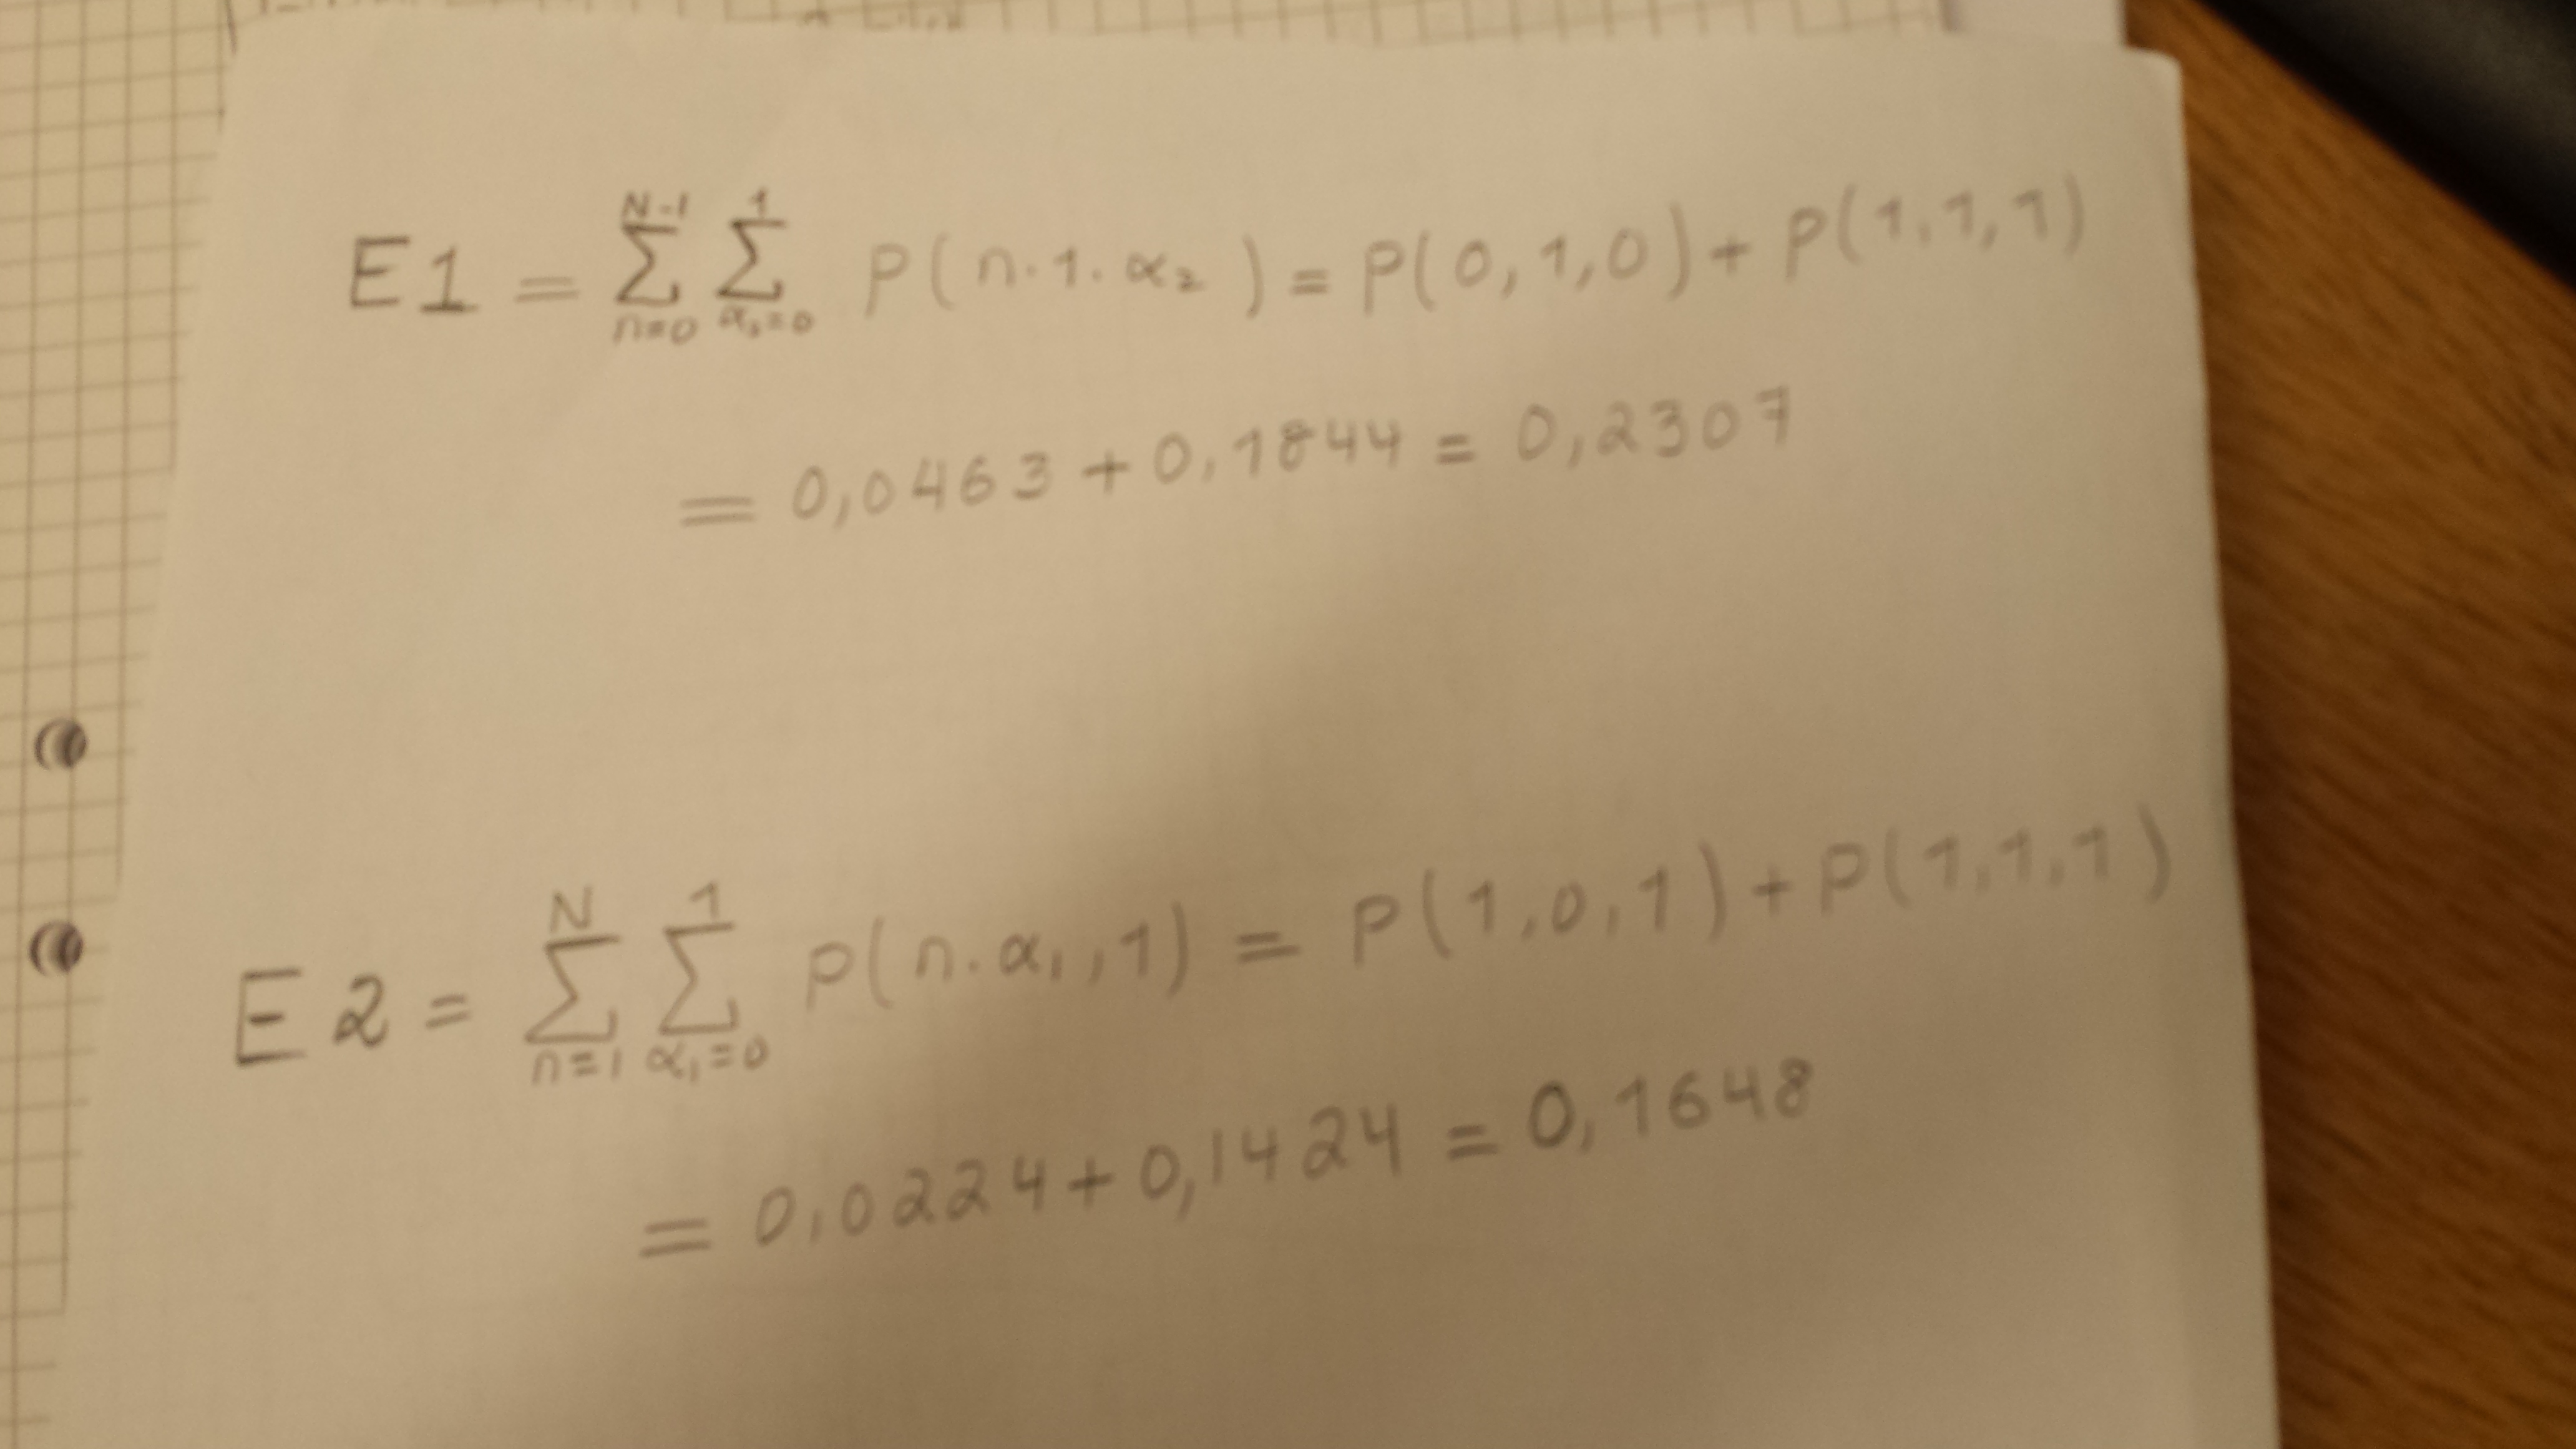 E1 = N-1 ∑ n=0 1 ∑ α₂=0 P(n.1.α₂) = P(0,1,0) + P(1,1,1)
= 0,0463 + 0,1844 = 0,2307
E2 = N ∑ n=1 1 ∑ α₁=0 P(n.α₁,1) = P(1,0,1) + P(1,1,1)
= 0,0224 + 0,1424 = 0,1648